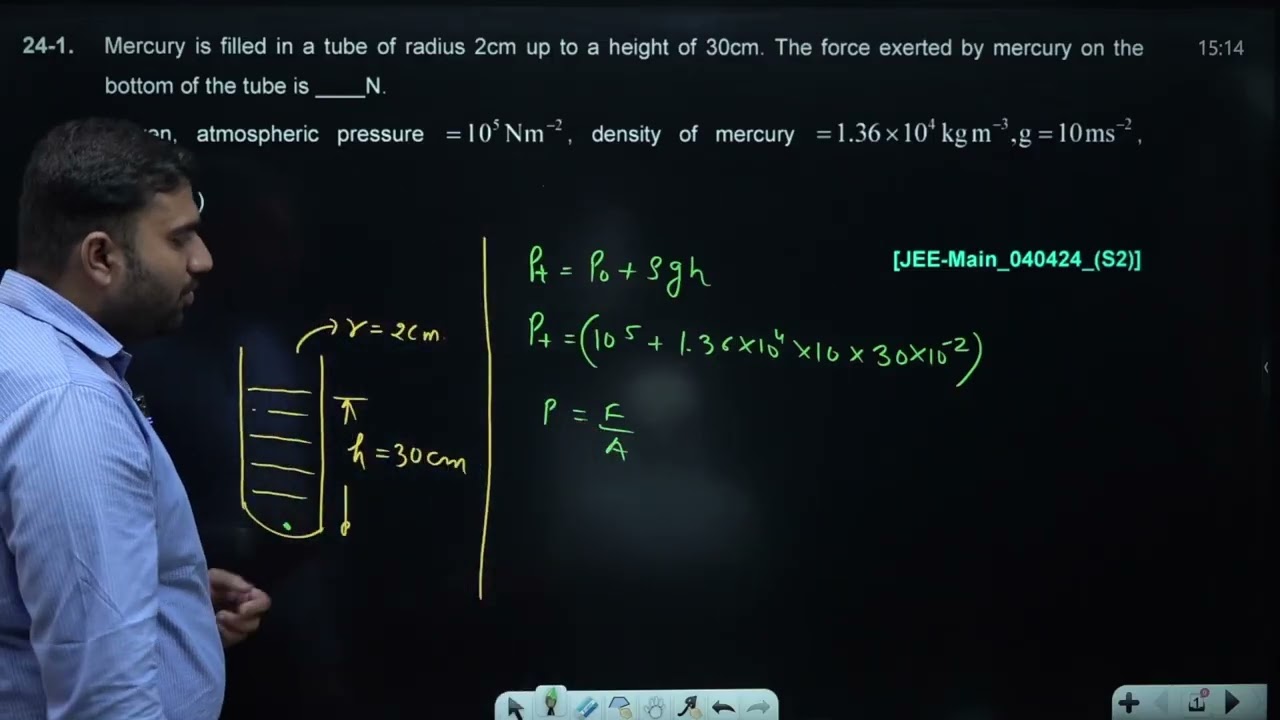 24-1. Mercury is filled in a tube of radius 2cm up to a height of 30cm. The force exerted by mercury on the
15:14
bottom of the tube is ____N.
atmospheric pressure =10⁵ Nm⁻², density of mercury =1.36×10⁴ kg m⁻³, g =10ms⁻²,
)
[JEE-Main_040424_(S2)]
r = 2cm
h = 30cm
Pₜ = P₀ + ρgh
Pₜ = (10⁵ + 1.36×10⁴ ×10 × 30×10⁻²)
P = F/A
1